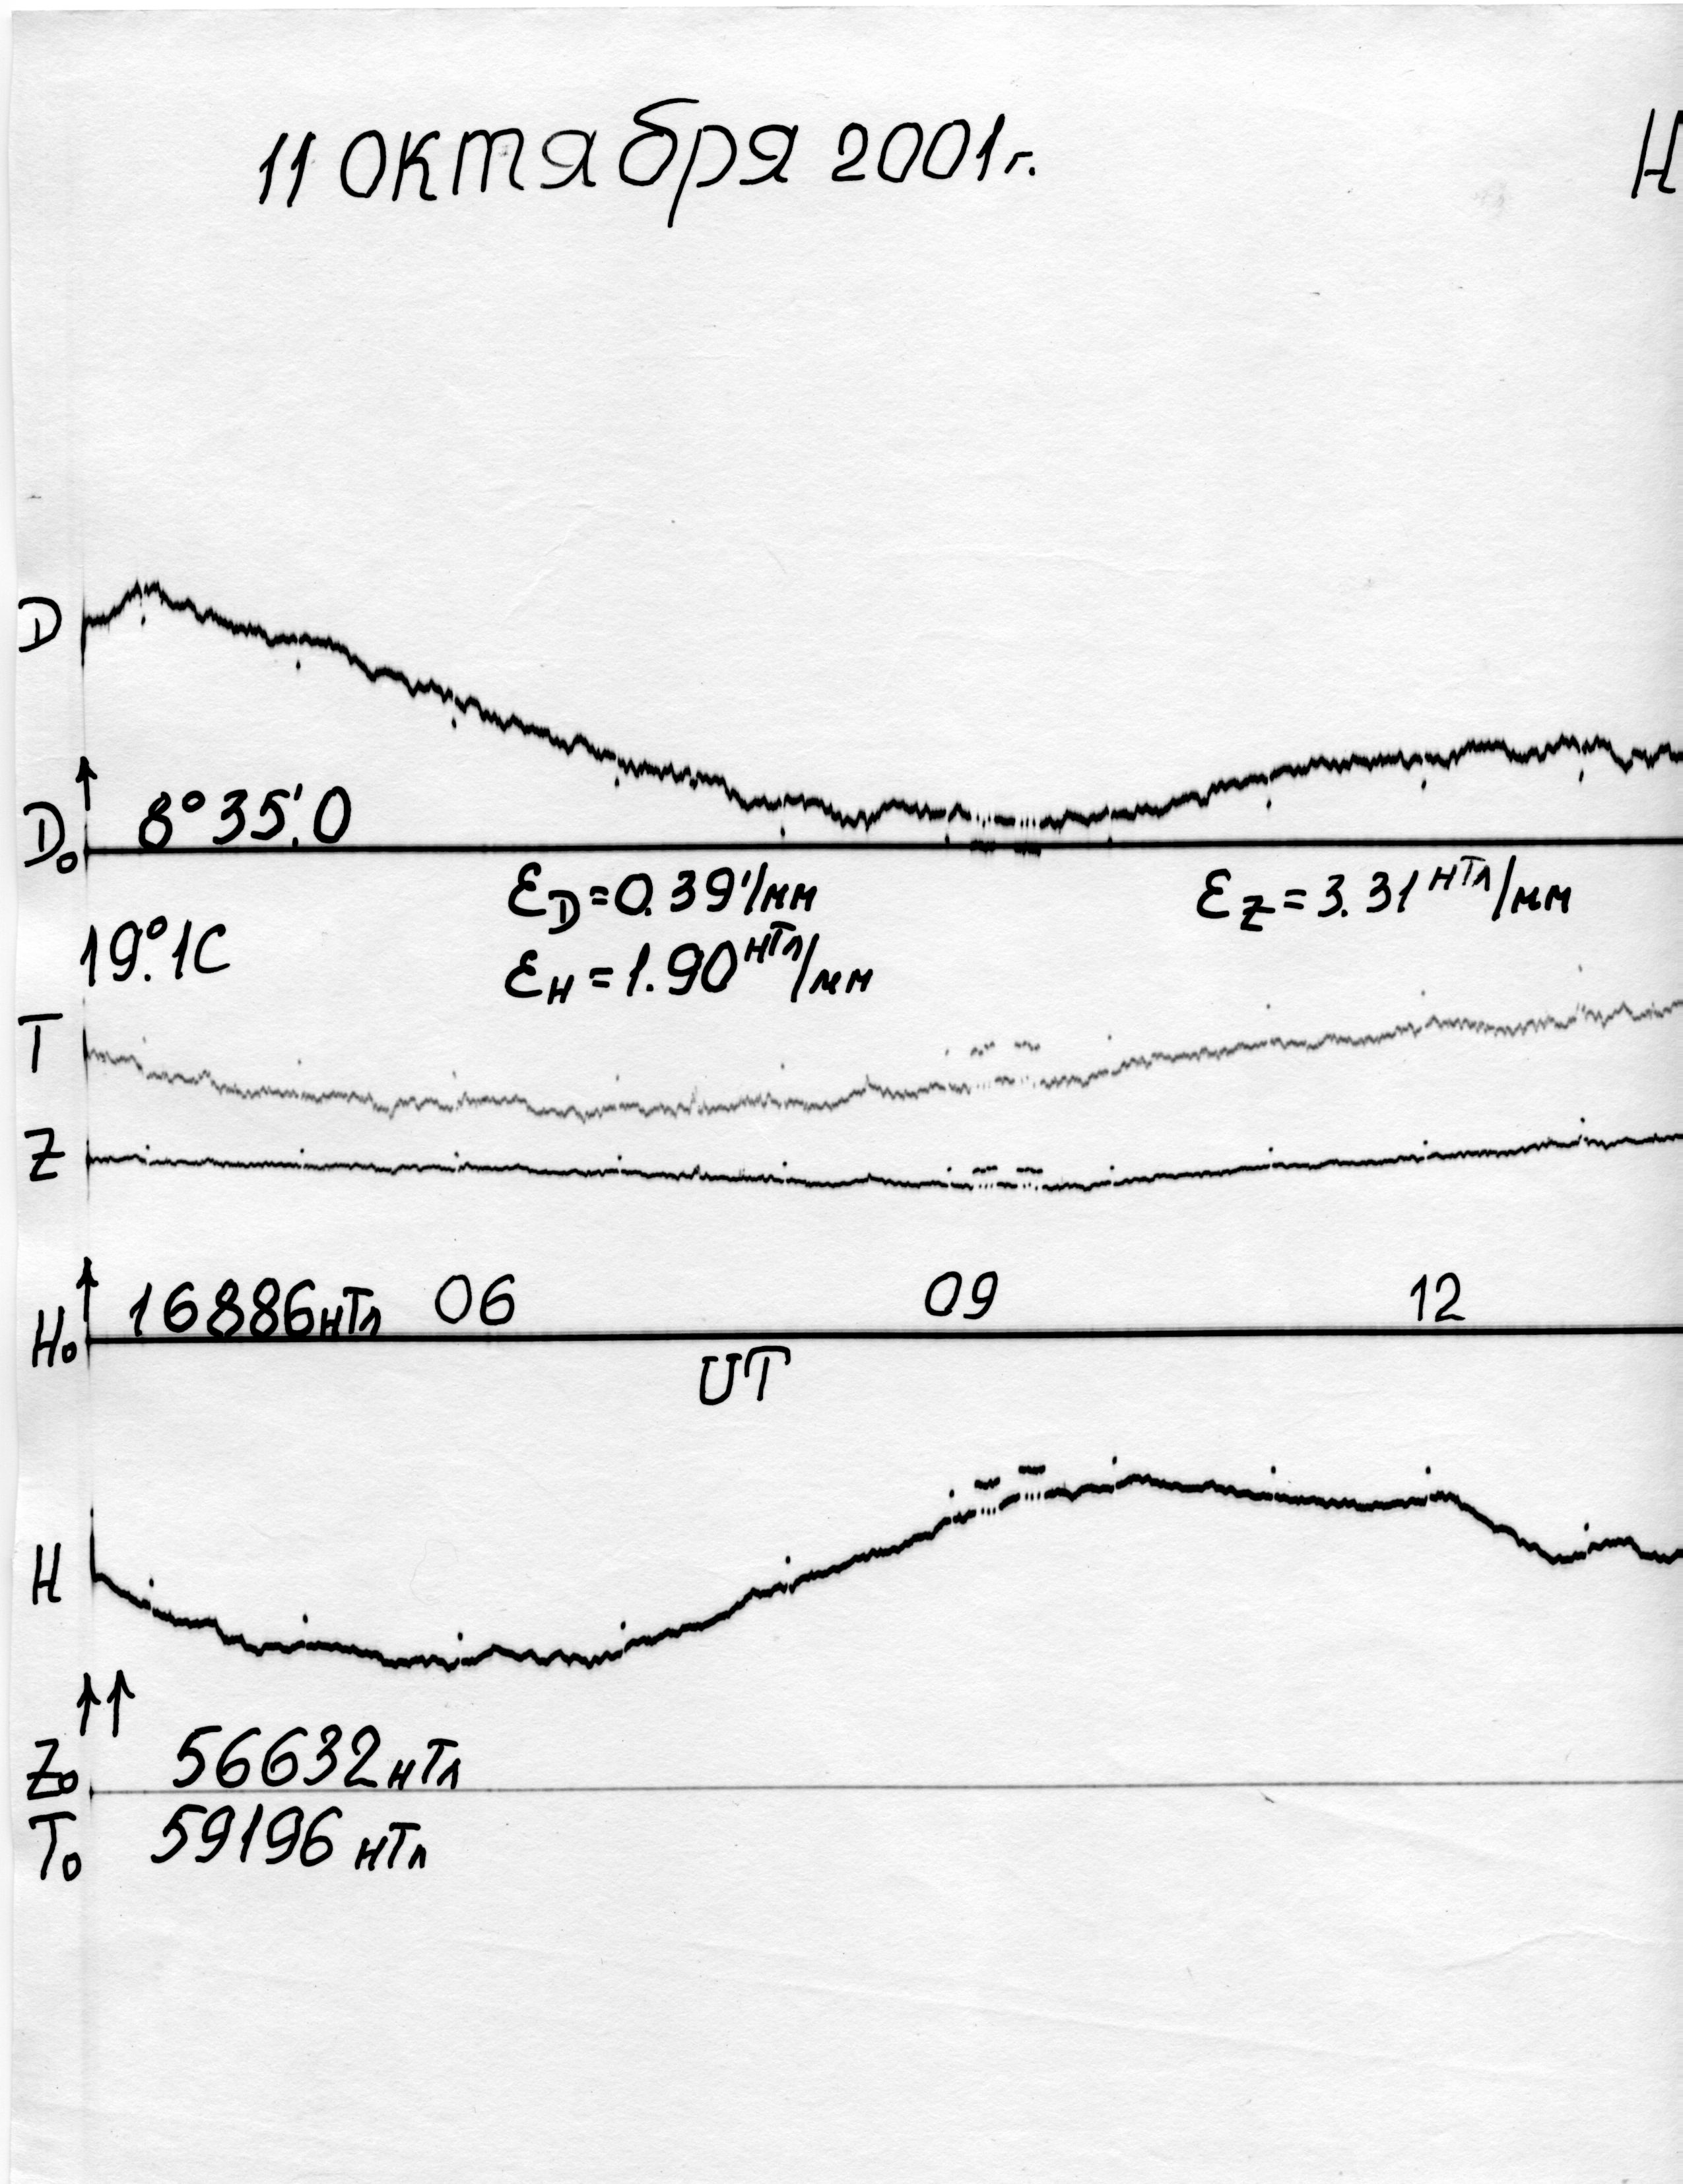 11 октября 2001г.
D
D₀ 8°35'.0
ε_D=0.39'/мм
ε_Z=3.31 нТл/мм
19°.1С
ε_H=1.90 нТл/мм
T
Z
H₀ 16886нТл 06 09 12
UT
H
Z₀ 56632нТл
T₀ 59196 нТл